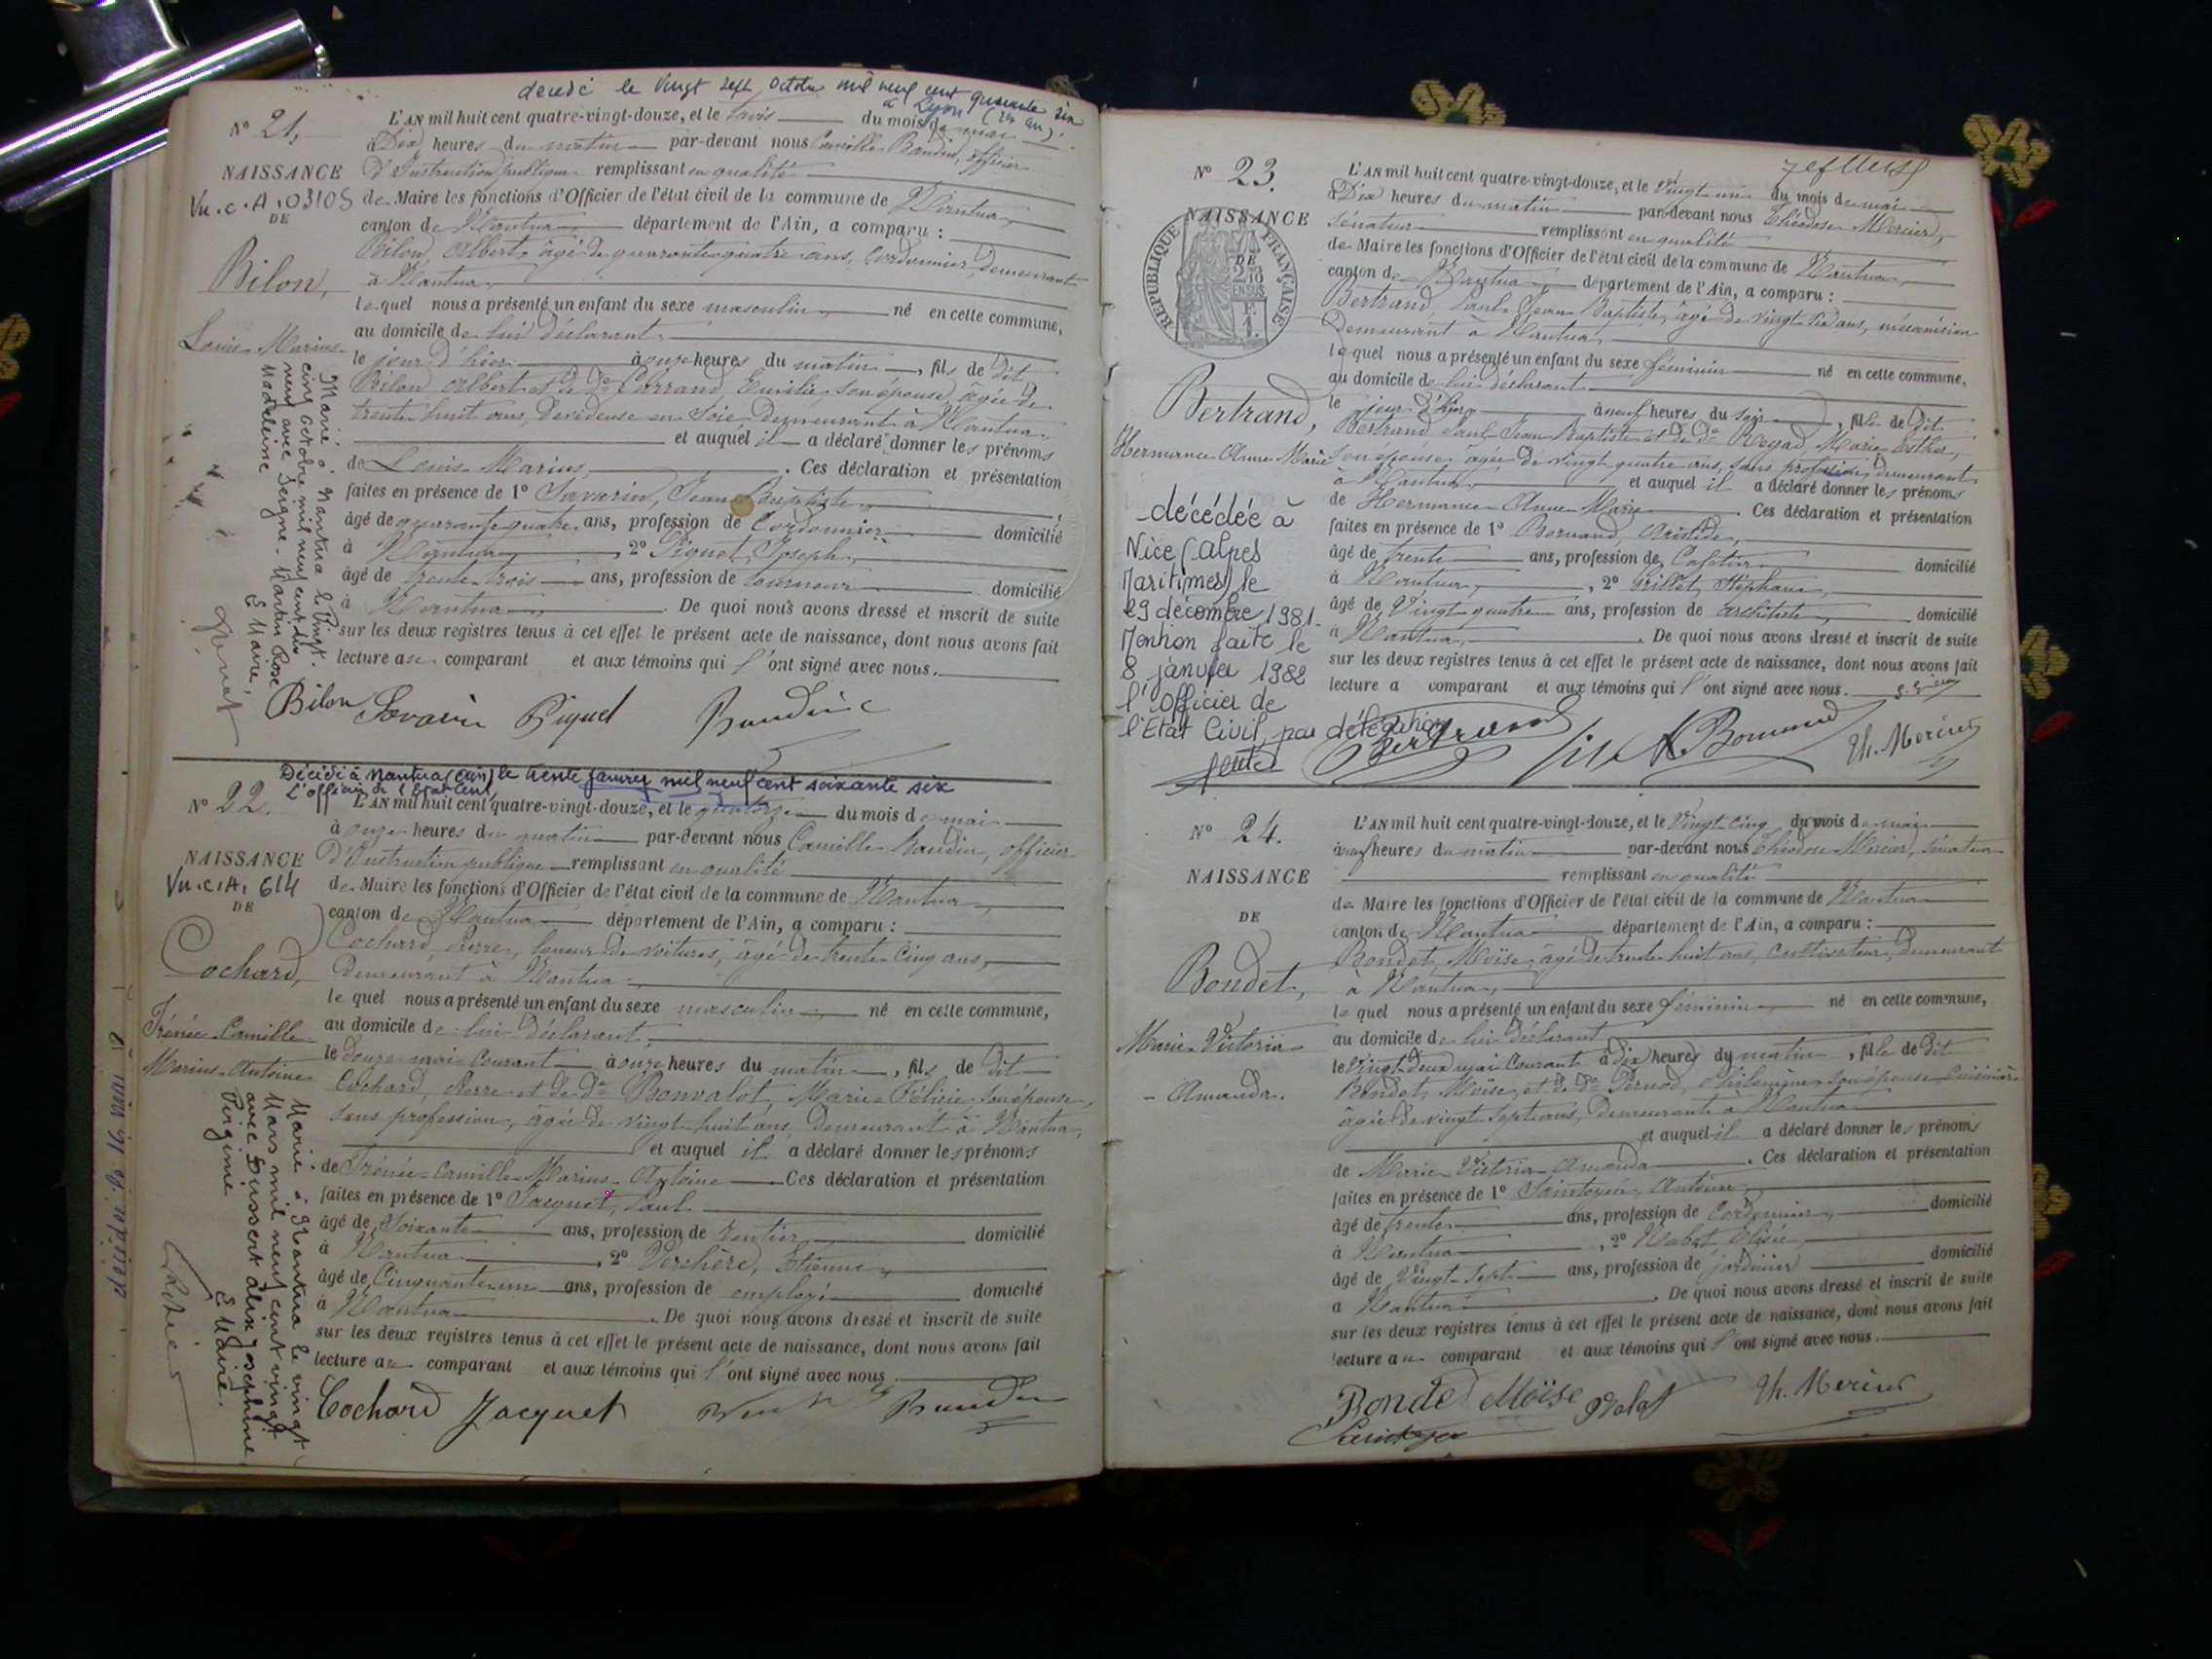 décédé le vingt sept octobre mil neuf cent quarante six
à Lyon
N° 21,
L'AN mil huit cent quatre-vingt-douze, et le trois du mois de mai
à Dix heures du matin par-devant nous Camille Baudin, officier
NAISSANCE
d'Instruction publique remplissant en qualité
Vu.c.A.03105
de Maire les fonctions d'Officier de l'état civil de la commune de Nantua,
DE
canton de Nantua département de l'Ain, a comparu :
Bilon, Albert, âgé de quarante quatre ans, Cordonnier, demeurant
Bilon,
à Nantua,
lequel nous a présenté un enfant du sexe masculin né en cette commune,
Louis Marius
au domicile de lui déclarant,
le jour d'hier à onze heures du matin, fils de dit
Bilon Albert et de De Carrand, Emilie son épouse, âgée de
trente huit ans, Devideuse en Soie, Demeurant à Nantua
et auquel il a déclaré donner les prénoms
de Louis Marius. Ces déclaration et présentation
faites en présence de 1° Savarin, Jean Baptiste,
âgé de quarante quatre ans, profession de Cordonnier domicilié
à Nantua, 2° Piquet, Joseph,
âgé de trente trois ans, profession de tourneur domicilié
à Nantua. De quoi nous avons dressé et inscrit de suite
sur les deux registres tenus à cet effet le présent acte de naissance, dont nous avons fait
lecture au comparant et aux témoins qui l'ont signé avec nous.
Marié à Nantua le vingt-
cinq Octobre mil neuf cent dix
neuf avec Seigne-Martin Rose
Madeleine
le Maire,
Bilon Savarin Piquet Baudin
Décédé à Nantua (Ain) le trente janvier mil neuf cent soixante six
L'officier de l'état civil,
N° 22.
L'AN mil huit cent quatre-vingt-douze, et le quatorze du mois de mai
à onze heures du matin par-devant nous Camille Baudin, officier
NAISSANCE
d'Instruction publique remplissant en qualité
Vu.c.A. 614
de Maire les fonctions d'Officier de l'état civil de la commune de Nantua,
DE
canton de Nantua département de l'Ain, a comparu :
Cochard, Pierre, loueur de voitures, âgé de trente cinq ans,
Cochard,
demeurant à Nantua
lequel nous a présenté un enfant du sexe masculin né en cette commune,
Irénée Camille
au domicile de lui déclarant,
le douze mai courant à onze heures du matin, fils de dit
Marius Antoine
Cochard, Pierre et de De Bonvalot, Marie Félicie son épouse,
sans profession, âgée de vingt huit ans, Demeurant à Nantua,
et auquel il a déclaré donner les prénoms
de Irénée-Camille-Marius-Antoine Ces déclaration et présentation
faites en présence de 1° Jacquet, Paul
âgé de Soixante ans, profession de rentier domicilié
à Nantua, 2° Verchère, Etienne,
âgé de Cinquante un ans, profession de employé domicilié
à Nantua. De quoi nous avons dressé et inscrit de suite
sur les deux registres tenus à cet effet le présent acte de naissance, dont nous avons fait
lecture au comparant et aux témoins qui l'ont signé avec nous
Marié à Nantua le vingt
Mars mil neuf cent vingt
avec Buissert Alix Josephine
Virginie
le Maire.
Cochard Jacquet Baudin
N° 23.
L'AN mil huit cent quatre-vingt-douze, et le vingt un du mois de mai
à Dix heures du matin par-devant nous Théodose Mercier,
NAISSANCE
sénateur remplissant en qualité
de Maire les fonctions d'Officier de l'état civil de la commune de Nantua,
DE
RÉPUBLIQUE FRANÇAISE
canton de Nantua département de l'Ain, a comparu :
Bertrand, Paul Jean Baptiste, âgé de vingt six ans, mécanicien
Demeurant à Nantua,
lequel nous a présenté un enfant du sexe féminin né en cette commune,
au domicile de lui déclarant
Bertrand,
le jour d'hier à neuf heures du soir, fille de dit
Bertrand Paul Jean Baptiste et de De Regad, Marie Esther,
Hermance Anne Marie
son épouse, âgée de vingt quatre ans, sans profession, demeurant
à Nantua, et auquel il a déclaré donner les prénoms
de Hermance Anne Marie. Ces déclaration et présentation
faites en présence de 1° Bornand, Aristide,
âgé de trente ans, profession de Cafetier domicilié
à Nantua, 2° Grillet, Stéphane,
âgé de Vingt quatre ans, profession de architecte, domicilié
à Nantua,. De quoi nous avons dressé et inscrit de suite
sur les deux registres tenus à cet effet le présent acte de naissance, dont nous avons fait
lecture a comparant et aux témoins qui l'ont signé avec nous.
décédée à
Nice (Alpes
Maritimes) le
29 décembre 1981.
Mention faite le
8 janvier 1982
l'Officier de
l'Etat Civil, par délégation
Bertrand A. Bornand Th. Mercier
N° 24.
L'AN mil huit cent quatre-vingt-douze, et le Vingt cinq du mois de mai
à neuf heures du matin par-devant nous Théodose Mercier, sénateur
NAISSANCE
remplissant en qualité
de Maire les fonctions d'Officier de l'état civil de la commune de Nantua
DE
canton de Nantua département de l'Ain, a comparu :
Bondet, Moïse, âgé de trente huit ans, cultivateur, demeurant
Bondet,
à Nantua,
lequel nous a présenté un enfant du sexe féminin né en cette commune,
Marie Victoria
au domicile de lui déclarant
le vingt deux mai courant à dix heures du matin, fille de dit
Amanda.
Bondet, Moïse et de De Pernod, Philomène son épouse Cuisinière
âgée de vingt sept ans, demeurant à Nantua
et auquel il a déclaré donner les prénoms
de Marie Victoria Amanda. Ces déclaration et présentation
faites en présence de 1° Antoine
âgé de trente ans, profession de Cordonnier, domicilié
à Nantua, 2°
âgé de Vingt sept ans, profession de jardinier domicilié
à Nantua. De quoi nous avons dressé et inscrit de suite
sur les deux registres tenus à cet effet le présent acte de naissance, dont nous avons fait
lecture au comparant et aux témoins qui l'ont signé avec nous.
Bondet Moïse Th. Mercier